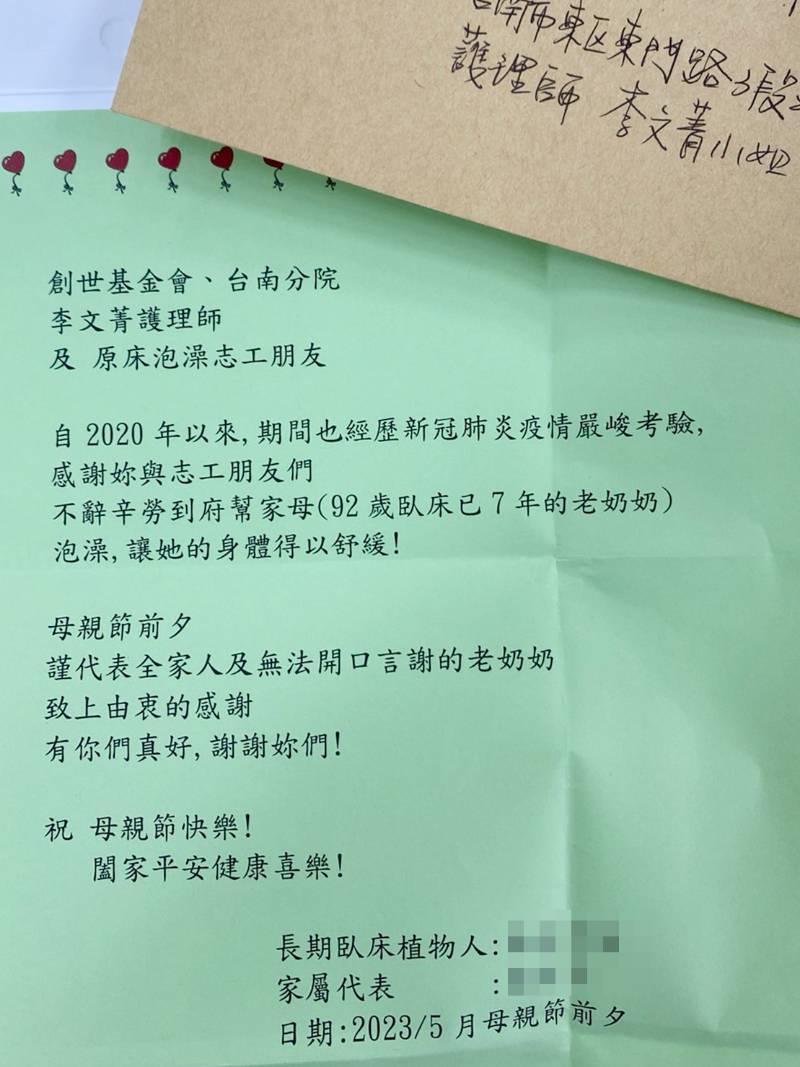 台南市東区東門路3段
護理師 李文菁小姐
創世基金會、台南分院
李文菁護理師
及 原床泡澡志工朋友
自 2020 年以來,期間也經歷新冠肺炎疫情嚴峻考驗,
感謝妳與志工朋友們
不辭辛勞到府幫家母(92 歲臥床已 7 年的老奶奶)
泡澡,讓她的身體得以舒緩!
母親節前夕
謹代表全家人及無法開口言謝的老奶奶
致上由衷的感謝
有你們真好,謝謝妳們!
祝 母親節快樂!
闔家平安健康喜樂!
長期臥床植物人:
家屬代表 :
日期:2023/5 月母親節前夕